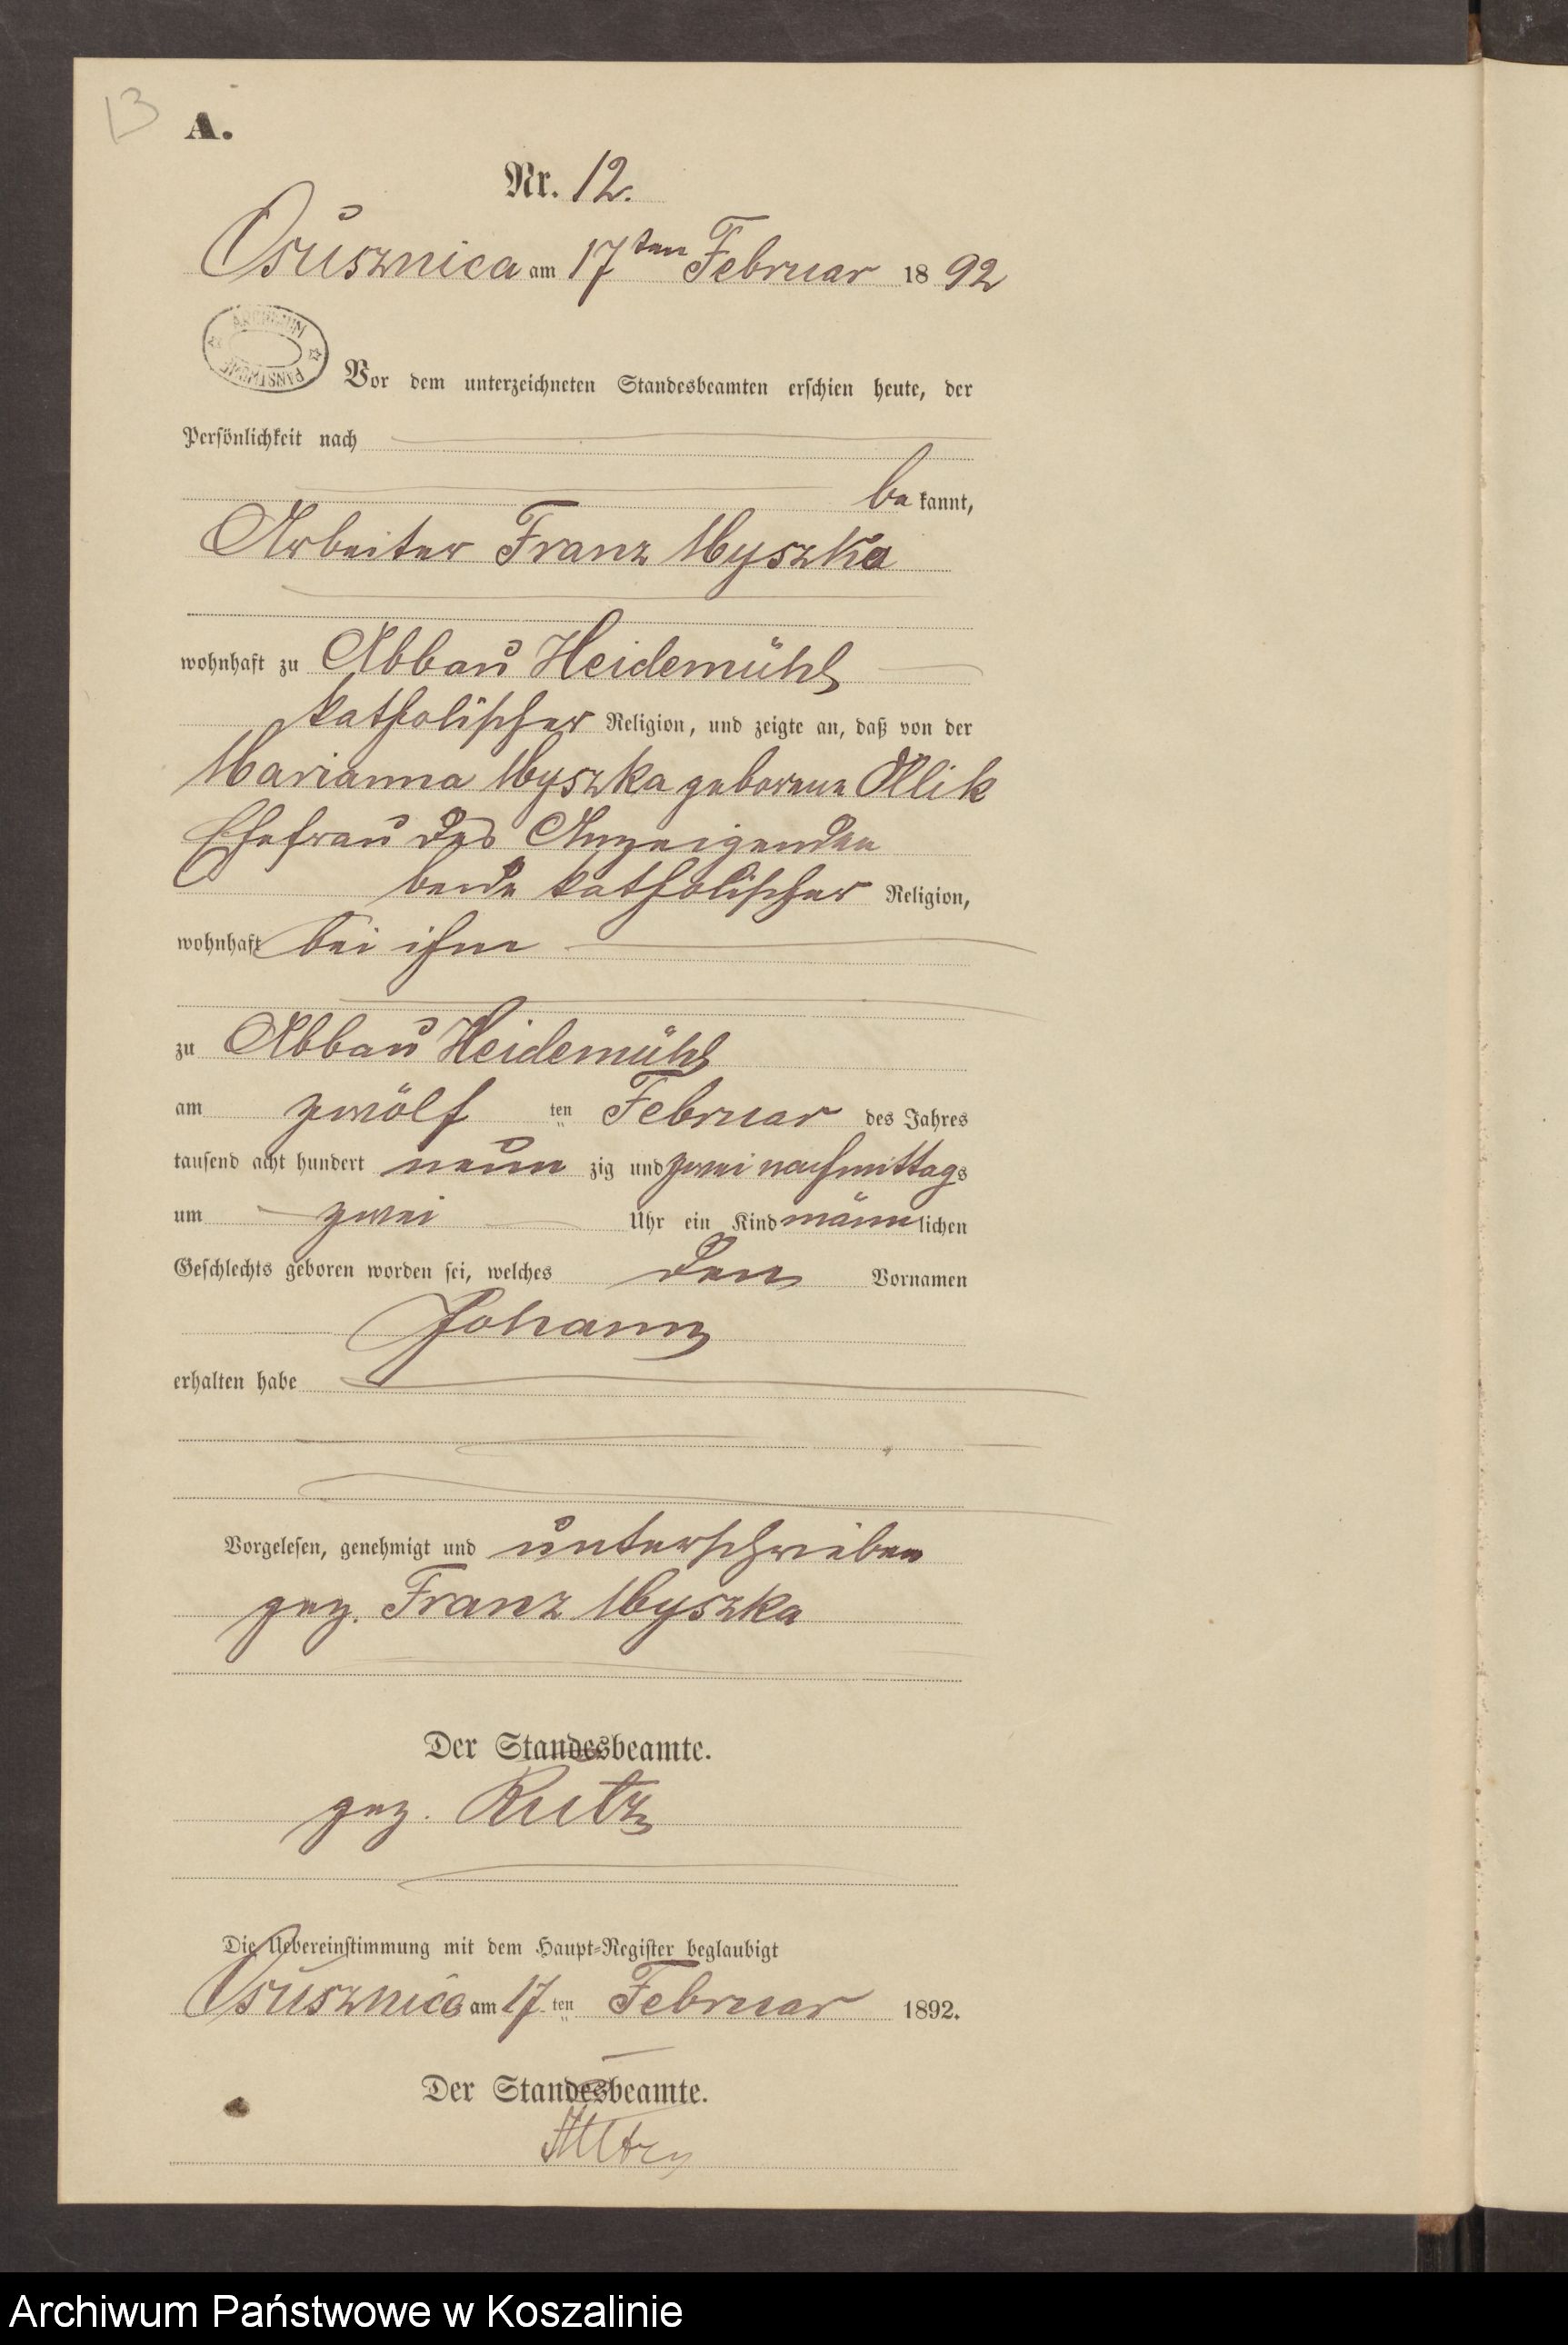 13
A.
Nr. 12.
Osusznica am 17ten Februar 1892
ARCHIWUM PAŃSTWOWE
Vor dem unterzeichneten Standesbeamten erschien heute, der
Persönlichkeit nach
be kannt,
Arbeiter Franz Myszka
wohnhaft zu Abbau Heidemühl
katholischer Religion, und zeigte an, daß von der
Marianna Myszka geborene Allik
Ehefrau des Anzeigenden
beide katholischer Religion,
wohnhaft bei ihm
zu Abbau Heidemühl
am zwölf ten Februar des Jahres
tausend acht hundert neun zig und zwei nachmittags
um zwei Uhr ein Kind männlichen
Geschlechts geboren worden sei, welches den Vornamen
Johann
erhalten habe
Vorgelesen, genehmigt und unterschrieben
gez. Franz Myszka
Der Standesbeamte.
gez. Rutz
Die Uebereinstimmung mit dem Haupt-Register beglaubigt
Osusznica am 17 ten Februar 1892.
Der Standesbeamte.
Rutz
Archiwum Państwowe w Koszalinie